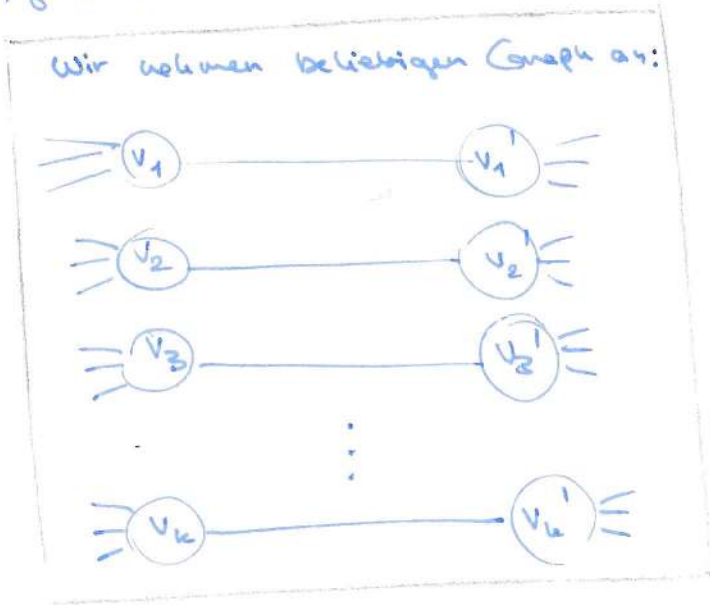 Wir nehmen beliebigen Graph an:
V₁ V₁'
V₂ V₂'
V₃ V₃'
Vₖ Vₖ'